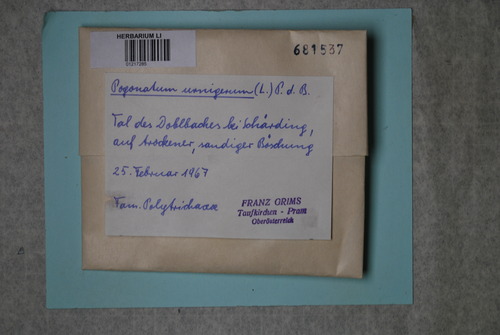 HERBARIUM LI
681537
Pogonatum urnigerum (L.) P. d. B.
Tal des Doblbaches bei Schärding,
auf trockener, sandiger Böschung
25. Februar 1967
Fam. Polytrichacae
FRANZ GRIMS
Taufkirchen - Pram
Oberösterreich